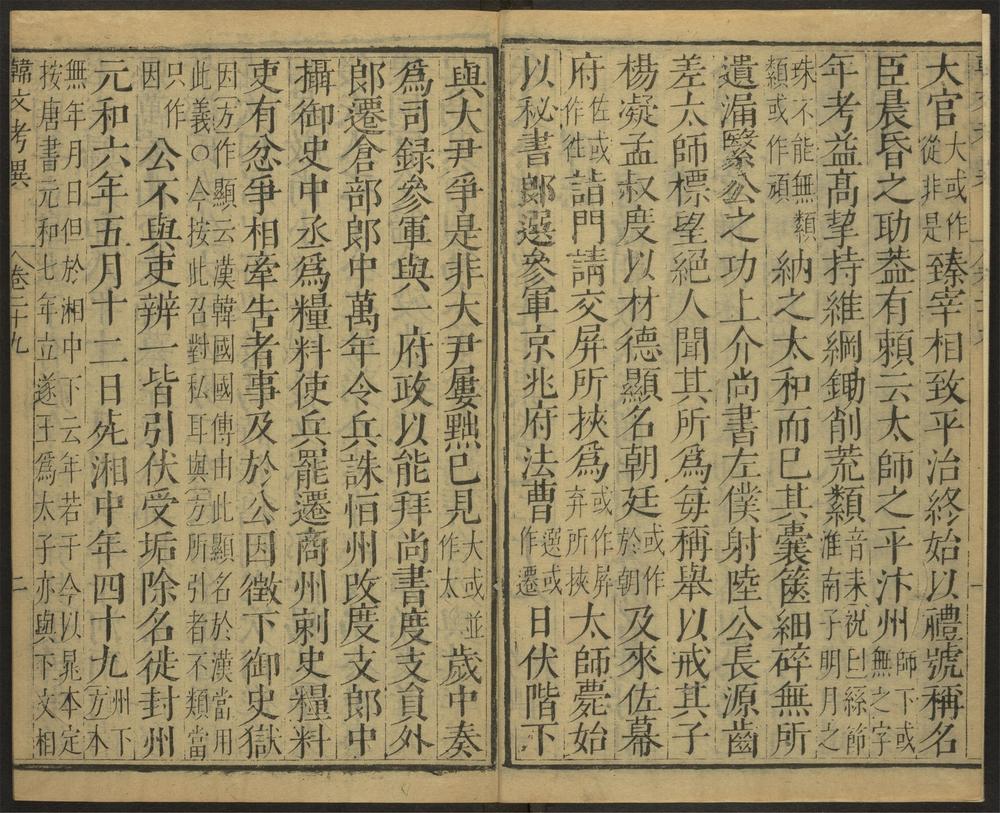 大官大或作從非是臻宰相致平治終始以禮號稱名
臣晨昏之助蓋有賴云太師之平汴州師下或無之字
年考益髙挈持維綱鋤削荒纇音耒祝曰絲節淮南子明月之
珠不能無纇纇或作頑納之太和而已其囊篋細碎無所
遺漏繄公之功上介尚書左僕射陸公長源齒
差太師標望絕人聞其所爲每稱舉以戒其子
楊凝孟叔度以材德顯名朝廷或作於朝及來佐幕
府佐或作往詣門請交屏所挾爲或作屏弃所挾太師薨始
以秘書郎選參軍京兆府法曹選或作遷日伏階下
與大尹爭是非大尹屢黜已見大或並作太歲中奏
爲司録參軍與一府政以能拜尚書度支貟外
郎遷倉部郎中萬年令兵誅恒州改度支郎中
攝御史中丞爲糧料使兵罷遷商州刺史糧料
吏有忿爭相牽告者事及於公因徵下御史獄
因方作顯云漢韓國國傳由此顯名於漢當用此義○今按此召對私耳與方所引者不類當
只作因公不與吏辨一皆引伏受垢除名徙封州
元和六年五月十二日死湘中年四十九州下方本
無年月日但於湘中下云年若干今以晁本定按唐書元和七年立遂王爲太子亦與下文相
韓文考異 卷二十九 二